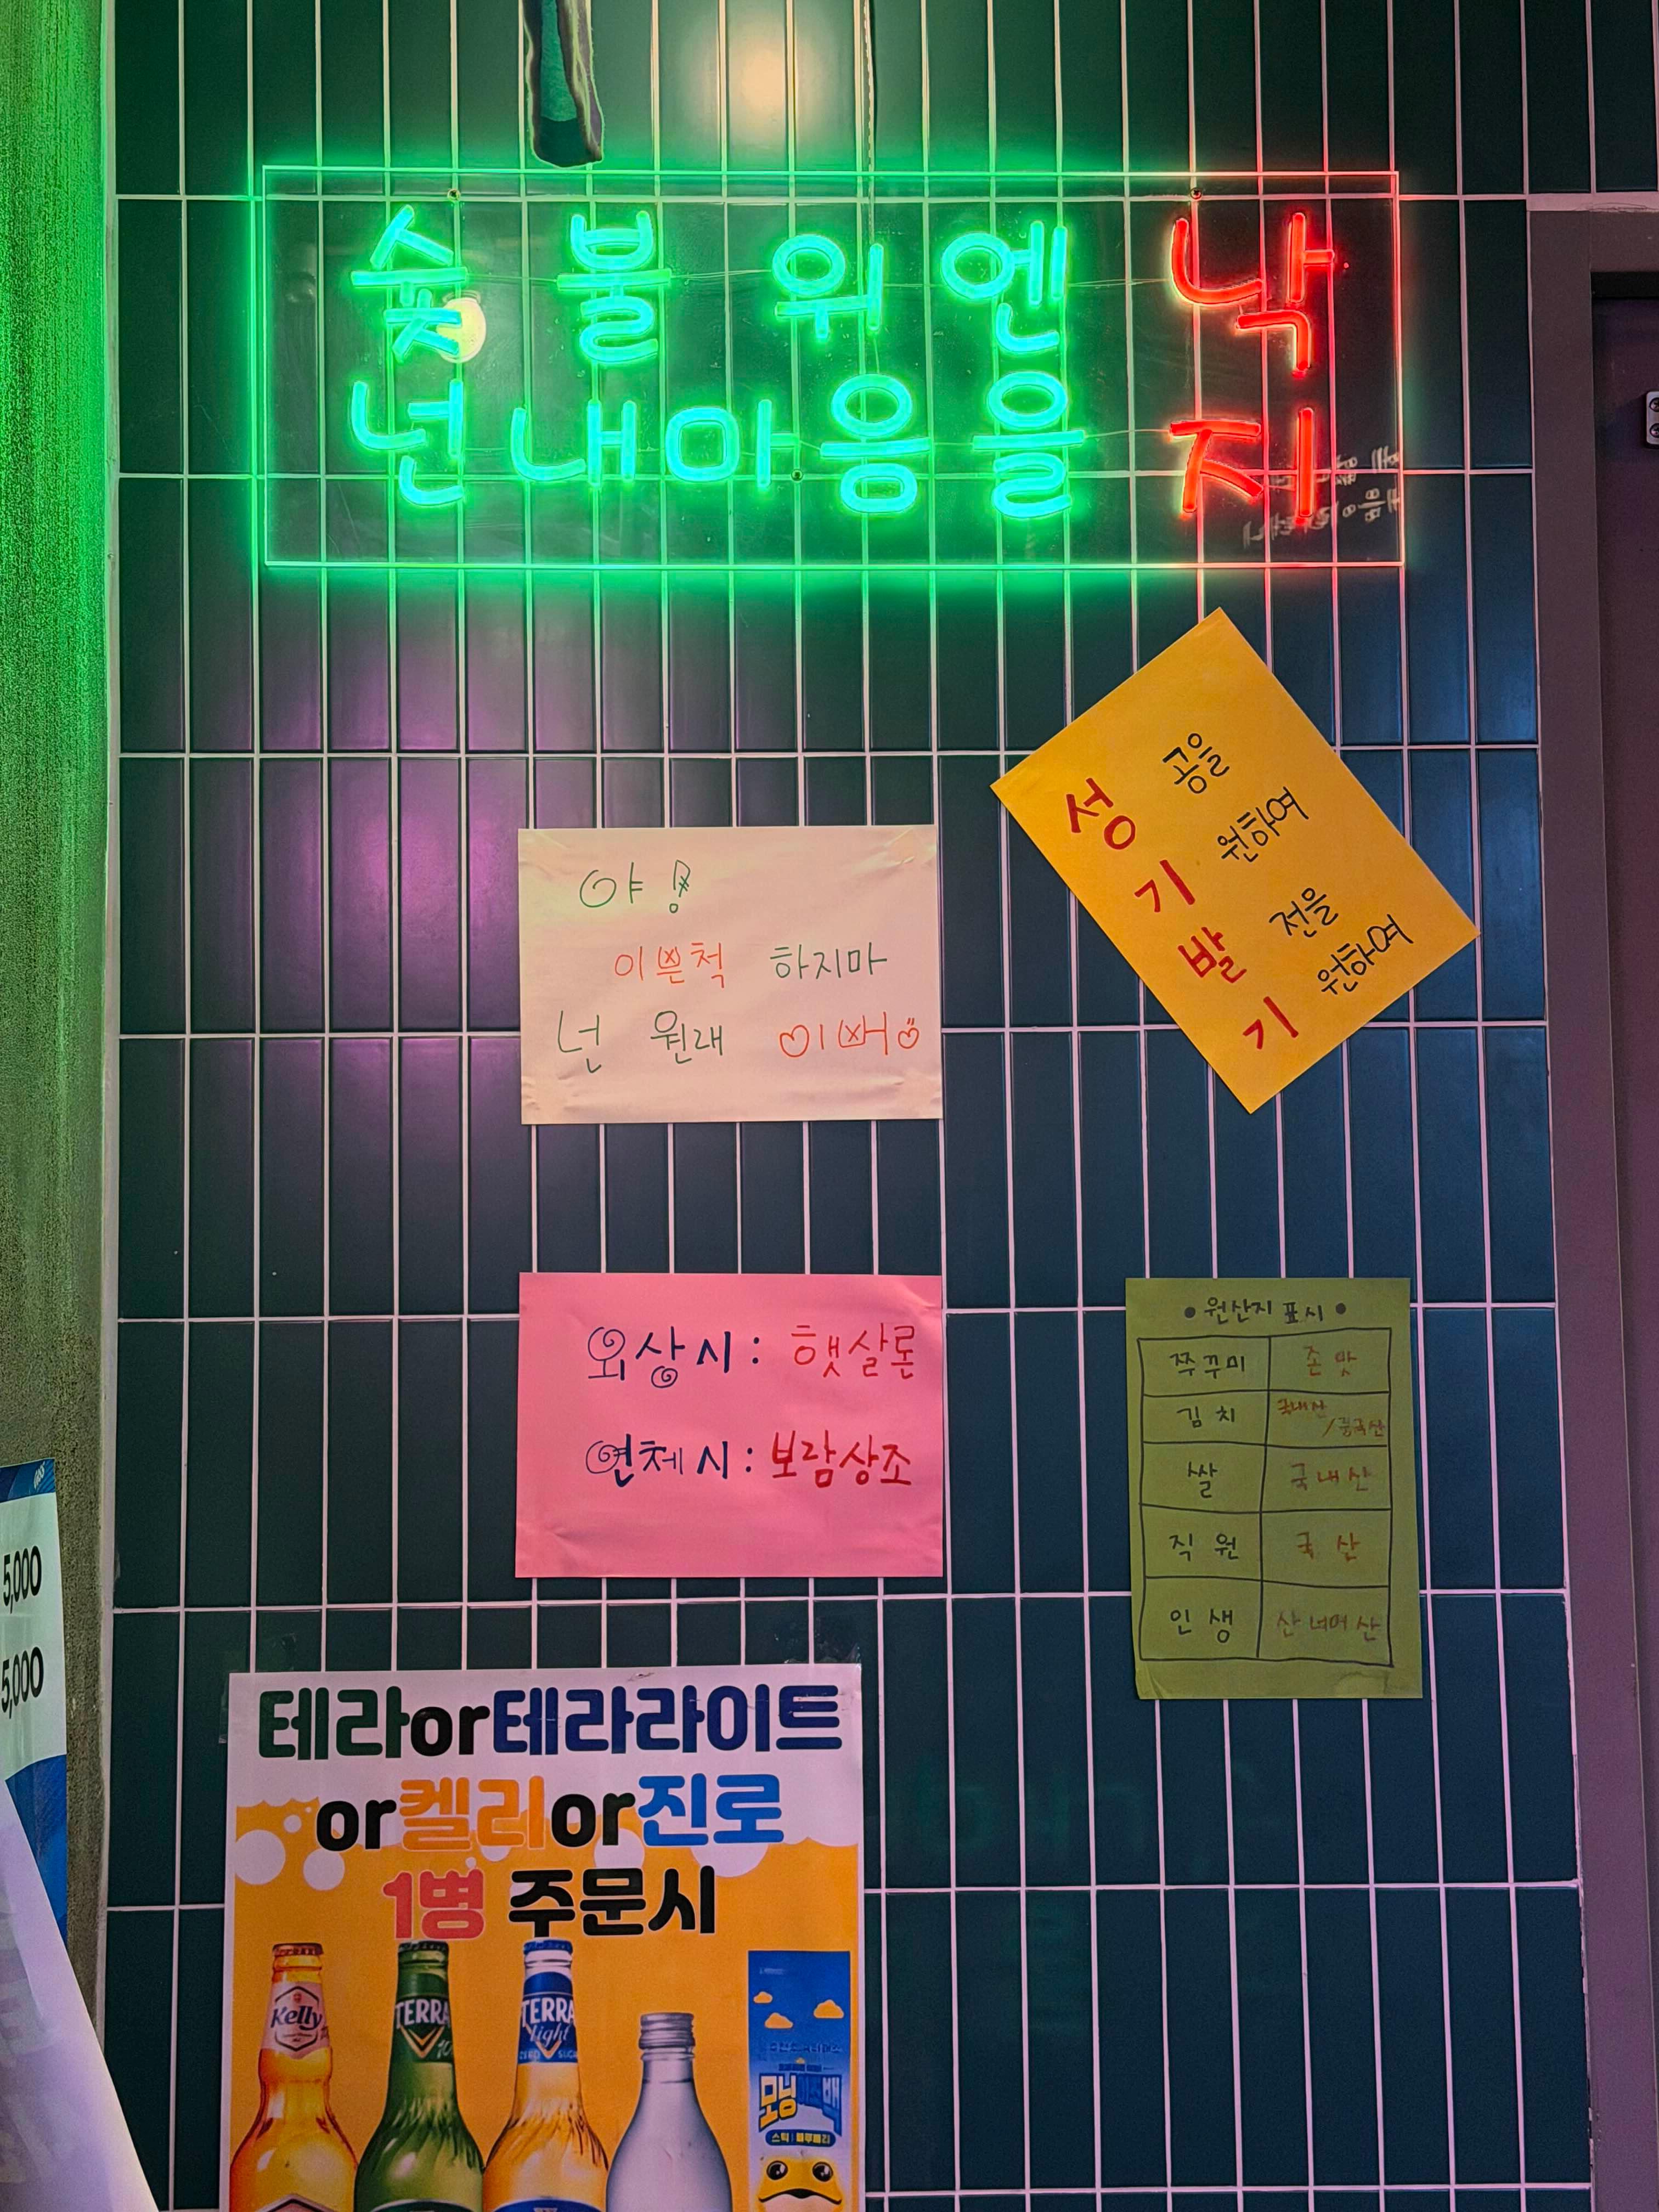 숯불 위엔 낙
넌 내마음을 지
성공을
기원하여
발전을
기원하여
야!
이쁜척 하지마
넌 원래 이뻐
외상시: 햇살론
연체시: 보람상조
•원산지 표시•
쭈꾸미 존맛
김치 국내산/중국산
쌀 국내산
직원 국산
인생 산 너머 산
5,000
5,000
테라or테라라이트
or켈리or진로
1병 주문시
Kelly
TERRA
TERRA
light
모닝
스틱